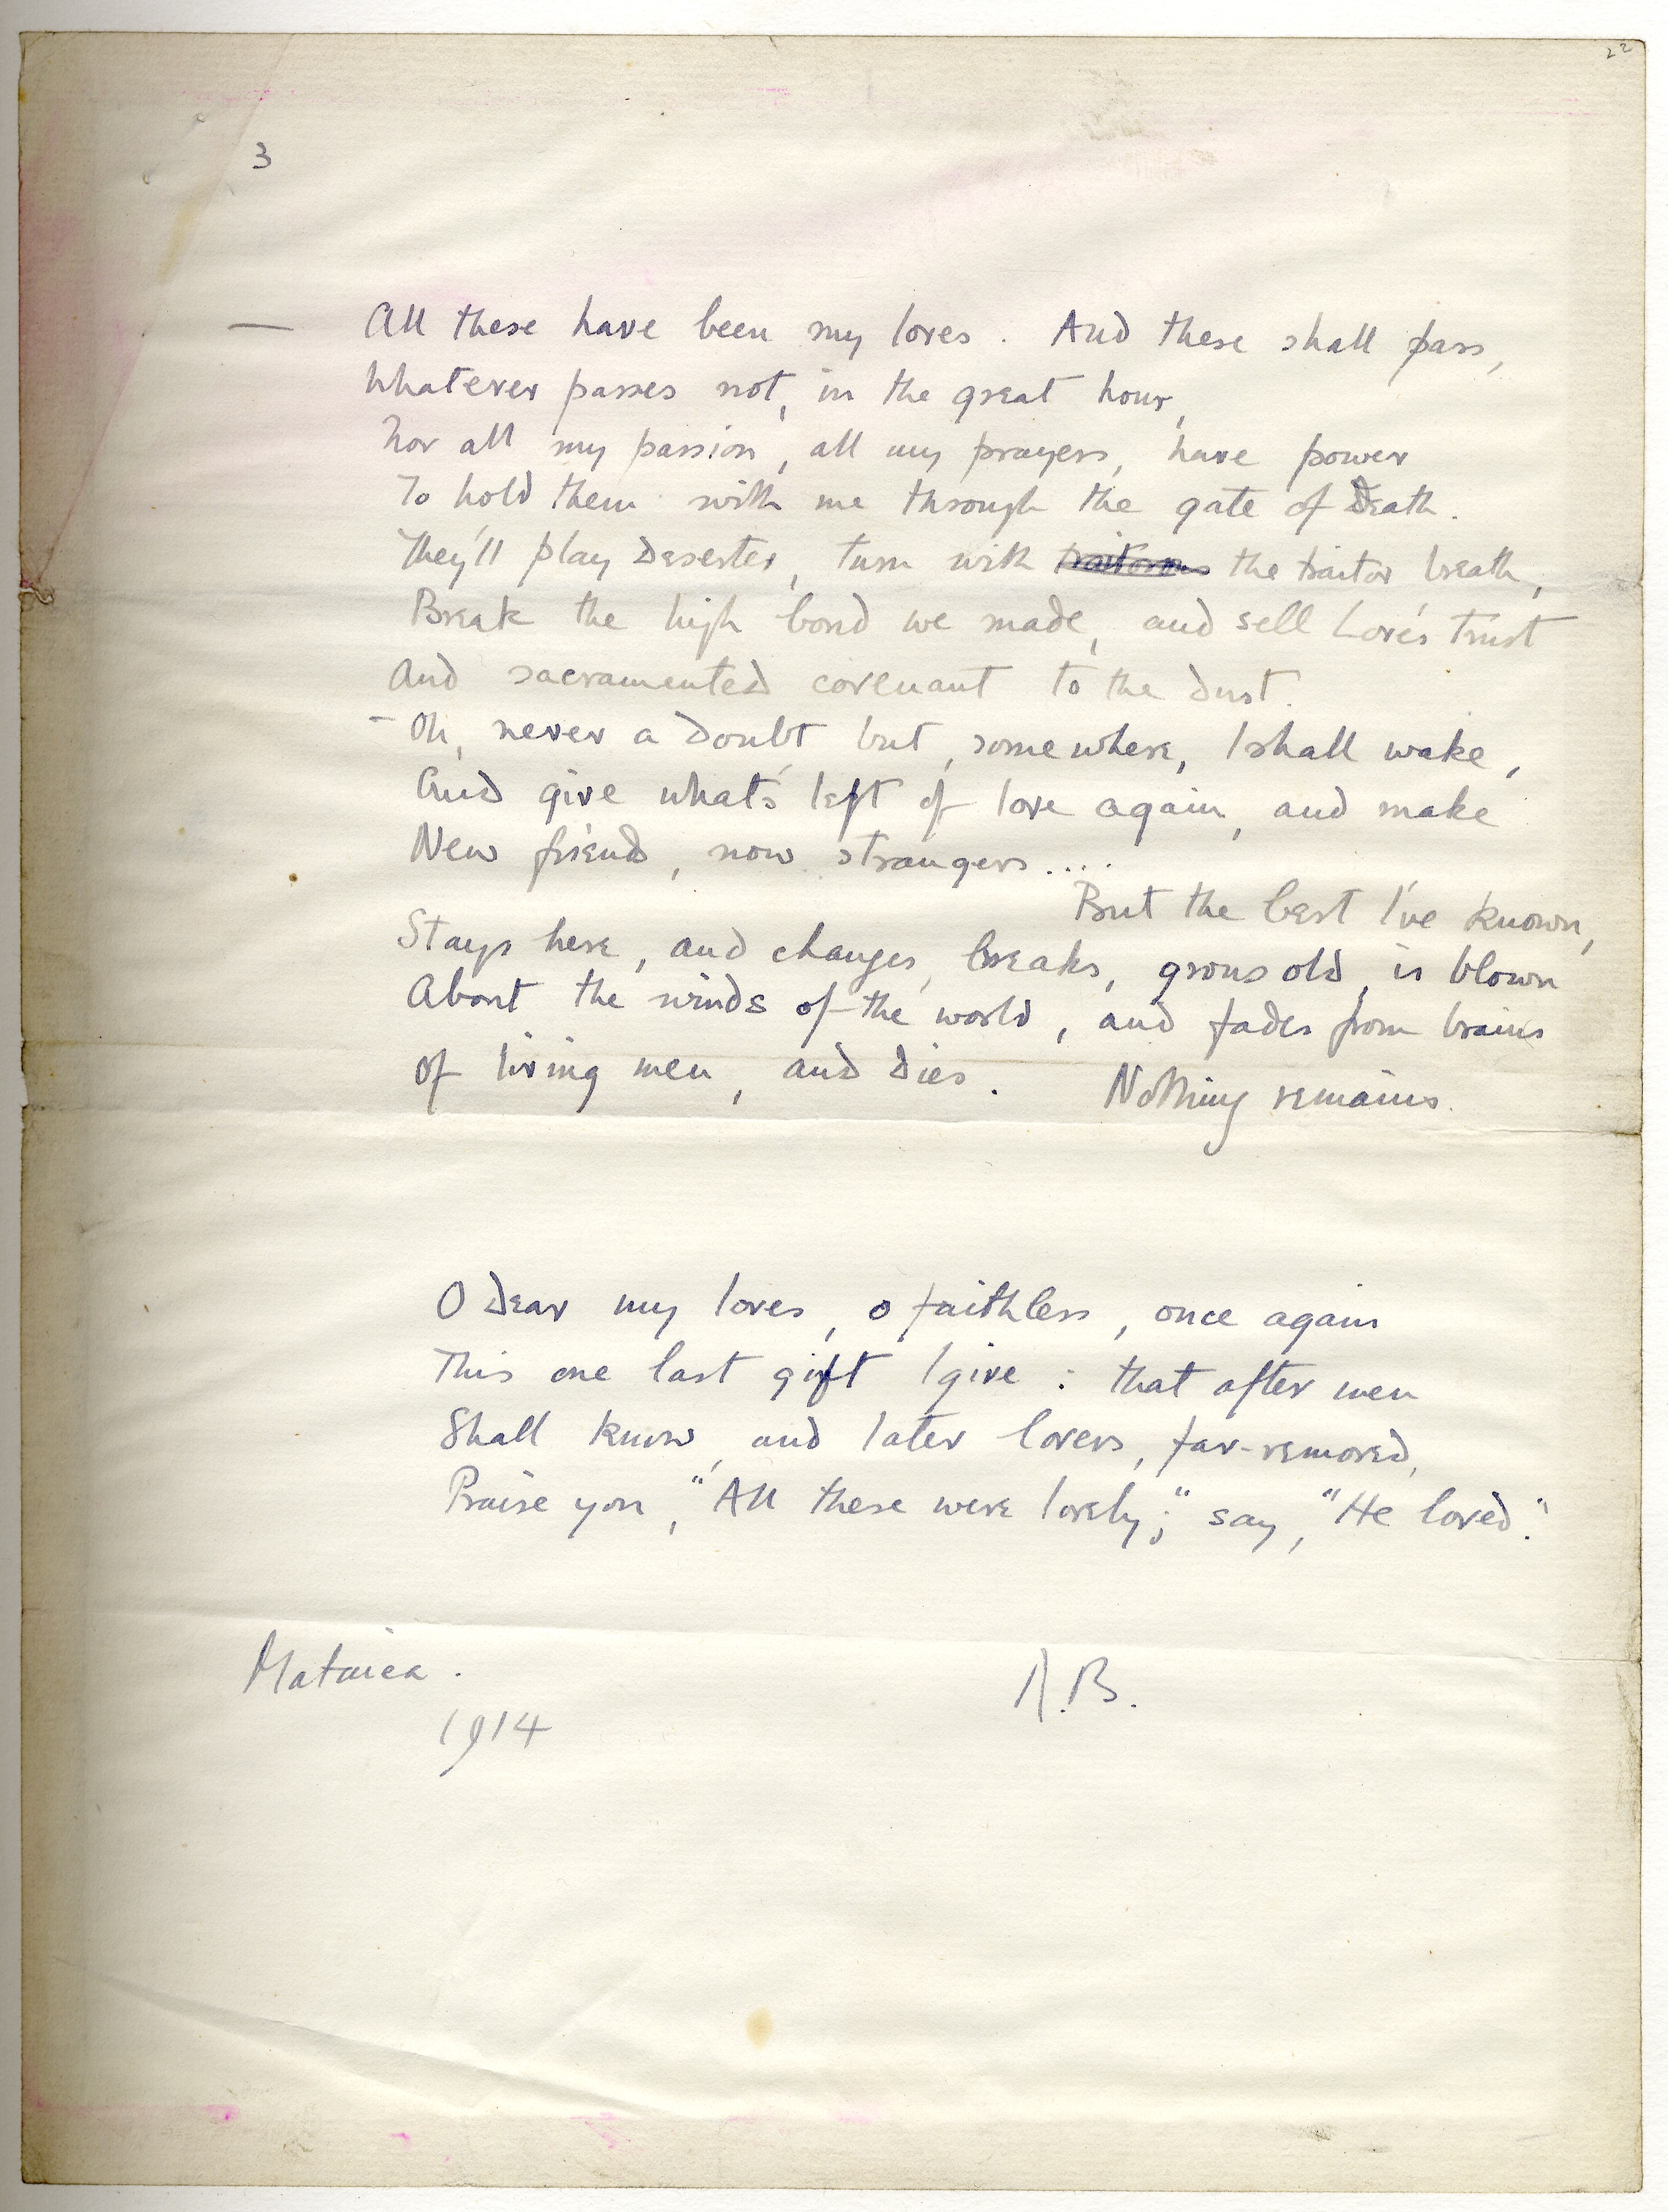 22
3
— All these have been my loves. And these shall pass,
Whatever passes not, in the great hour,
Nor all my passion, all my prayers, have power
To hold them with me through the gate of Death.
They'll play deserter, turn with traitorous the traitor breath,
Break the high bond we made, and sell Love's trust
And sacramented covenant to the dust.
- Oh, never a doubt but, somewhere, I shall wake,
And give what's left of love again, and make
New friends, now strangers....
But the best I've known,
Stays here, and changes, breaks, grows old, is blown
About the winds of the world, and fades from brains
Of living men, and dies. Nothing remains.
O dear my loves, o faithless, once again
This one last gift I give: that after men
Shall know, and later lovers, far-removed,
Praise you, "All these were lovely;" say, "He loved."
Mataiea. R.B.
1914